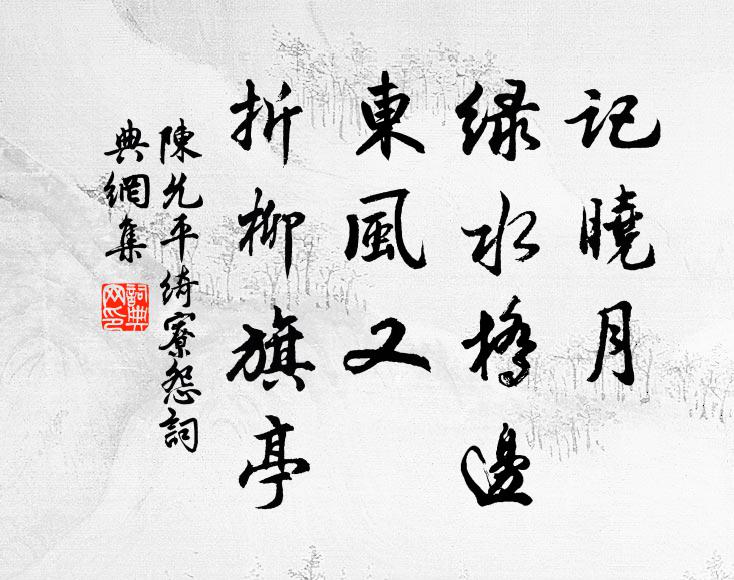 記曉月
緑水橋邊
東風又
折柳旗亭
陳允平綺寮怨詞
典網集
詞典
网印